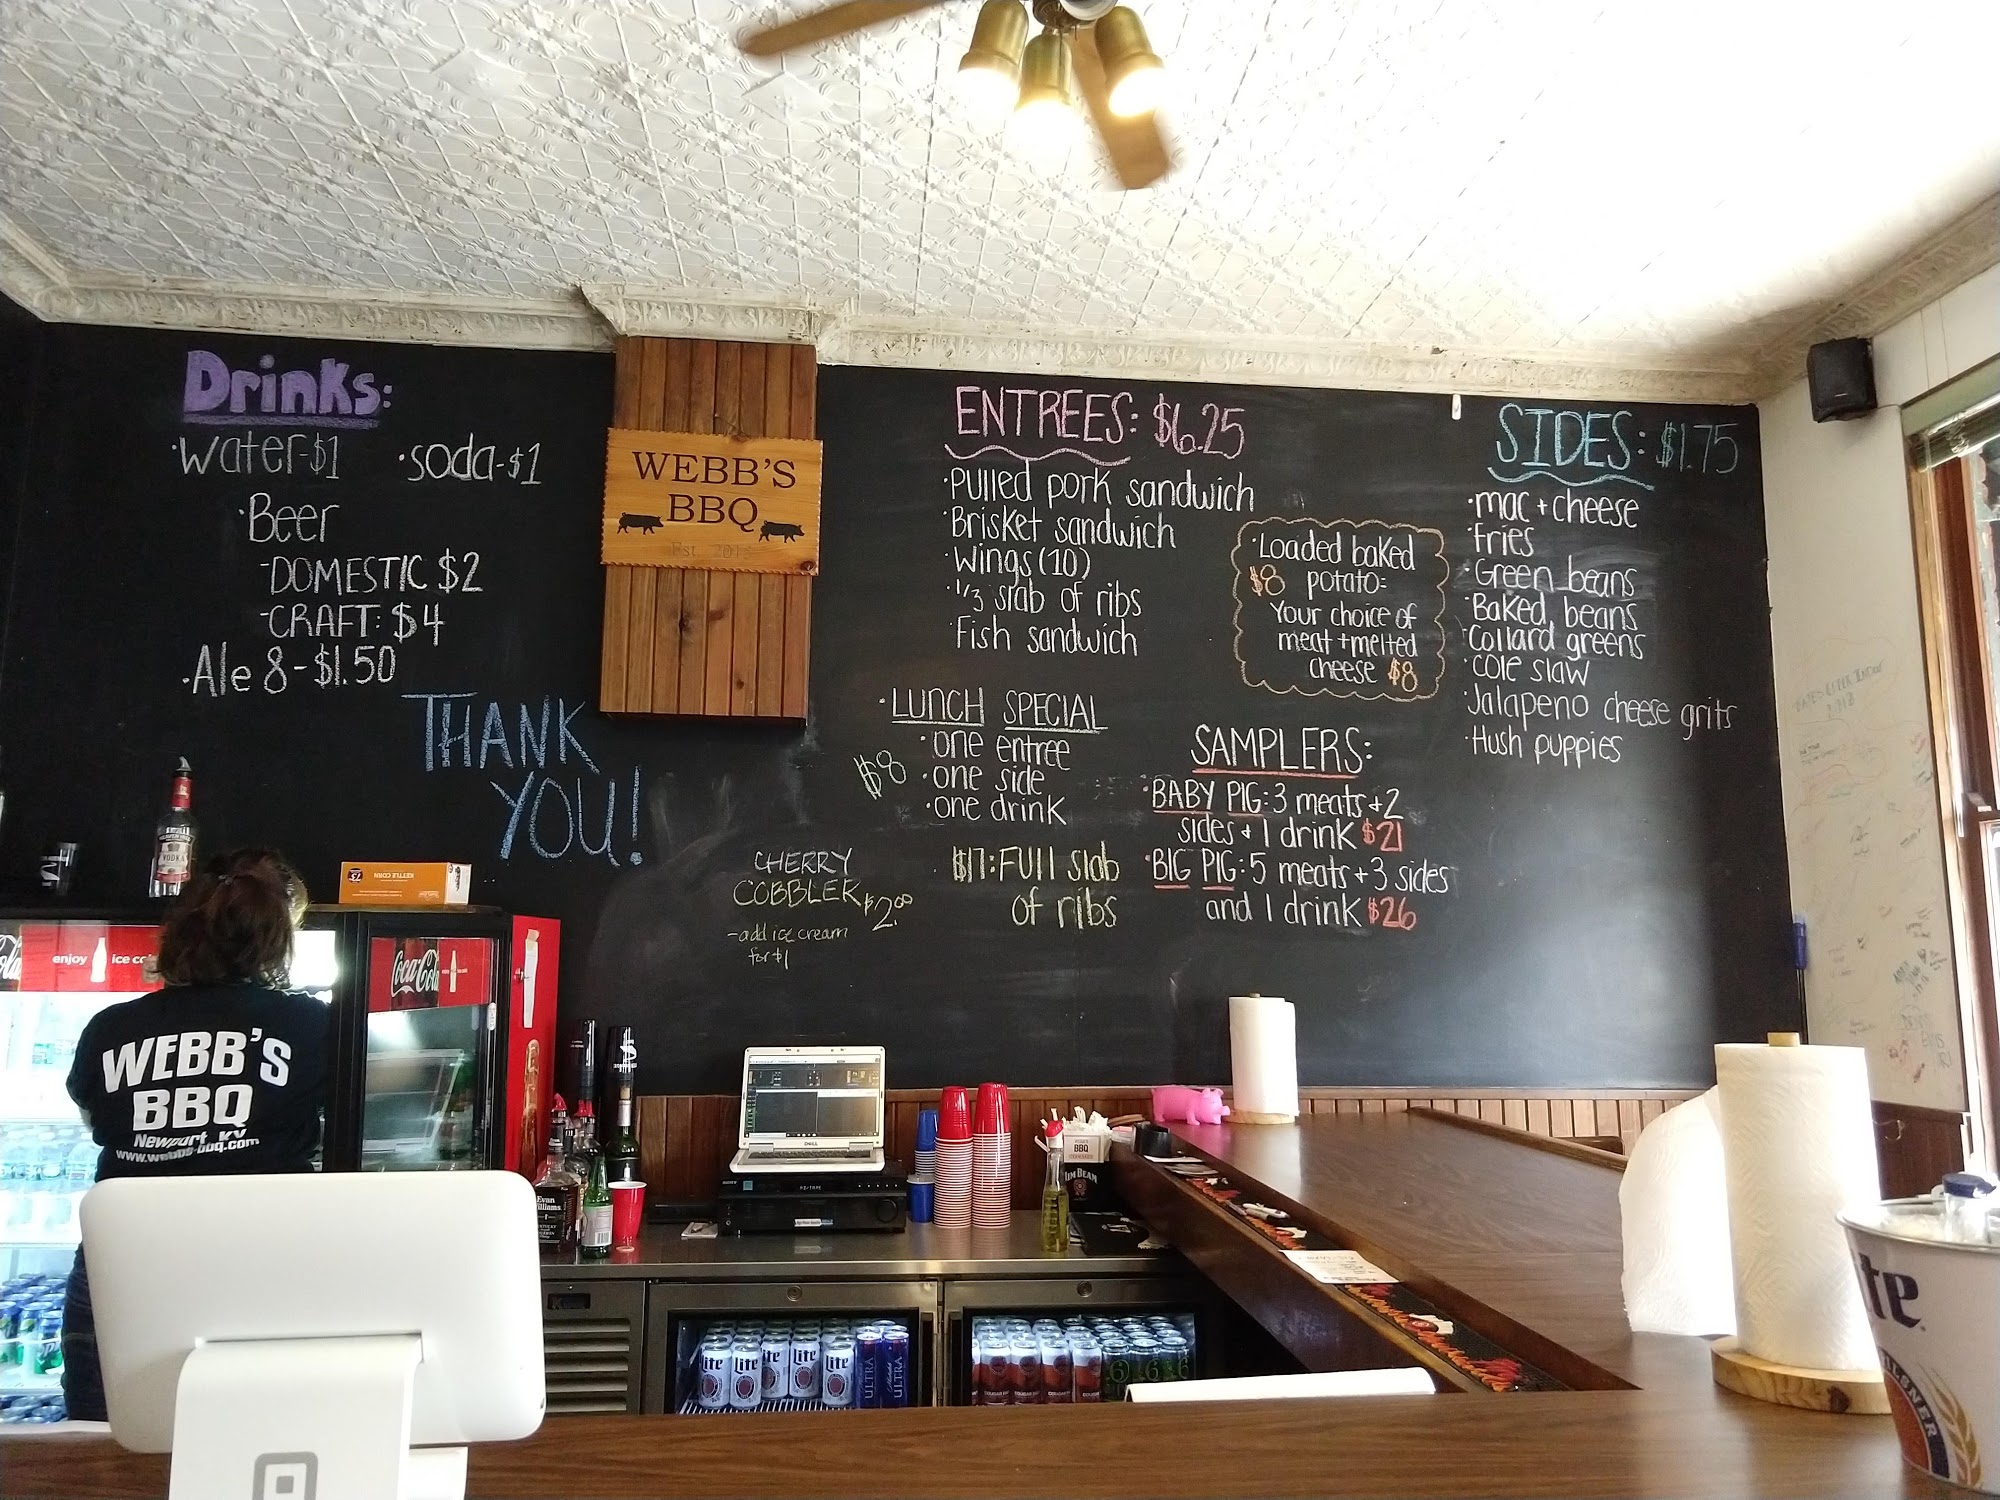 Drinks:
·Water-$1 ·soda-$1
·Beer
-DOMESTIC $2
-CRAFT: $4
·Ale 8-$1.50
THANK
YOU!
WEBB'S
BBQ
Est. 201
ENTREES: $6.25
·Pulled pork sandwich
·Brisket sandwich
·Wings (10)
·1/3 slab of ribs
·Fish sandwich
·Loaded baked
$8 potato:
Your choice of
meat + melted
cheese $8
SIDES: $1.75
·mac + cheese
·Fries
·Green beans
·Baked beans
·Collard greens
·cole slaw
·Jalapeno cheese grits
·Hush puppies
·LUNCH SPECIAL
$8
·one entree
·one side
·one drink
$17: Full slab
of ribs
CHERRY
COBBLER $2.00
-add ice cream
for $1
SAMPLERS:
·BABY PIG: 3 meats + 2
sides + 1 drink $21
·BIG PIG: 5 meats + 3 sides
and 1 drink $26
VODKA
KETTLE CORN
enjoy ice co
Coca-Cola
WEBB'S
BBQ
Newport, KY
www.webbs-bbq.com
DELL
SONY
BBQ
JIM BEAM
Evan
Williams
Lite
Lite
Lite
Lite
ULTRA
ULTRA
ite
PILSNER